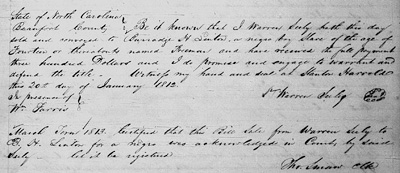 State of North Carolina
Beaufort County } Be it known that I Warren July hath this day
sold and conveyed to Burridge H Linton a negro boy Slave of the age of
fourteen or thereabouts named Freeman and have received the full payment
three hundred Dollars and I do promise and engage to warrant and
defend the title. Witness my hand and seal at
this 20th day of January 1812.
In presence of
Wm Farris
Warren July Seal
March Term 1813. Certified that the Bill Sale from Warren July to
B. H. Linton for a negro was acknowledged in Court by said
July let it be registered
Tho Smaw Clk